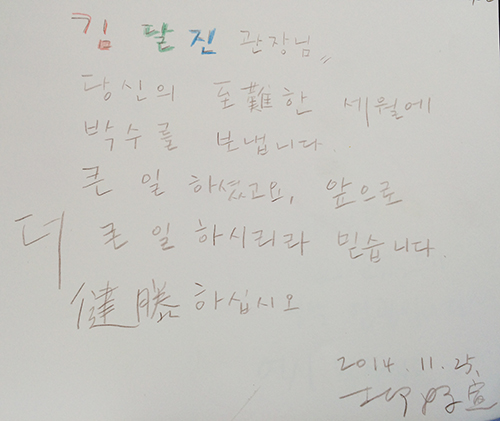 김 달 진 관장님,,
당신의 至難한 세월에
박수를 보냅니다..
큰 일 하셨고요, 앞으로
더 큰 일 하시리라 믿습니다
健勝하십시오
2014. 11. 25.